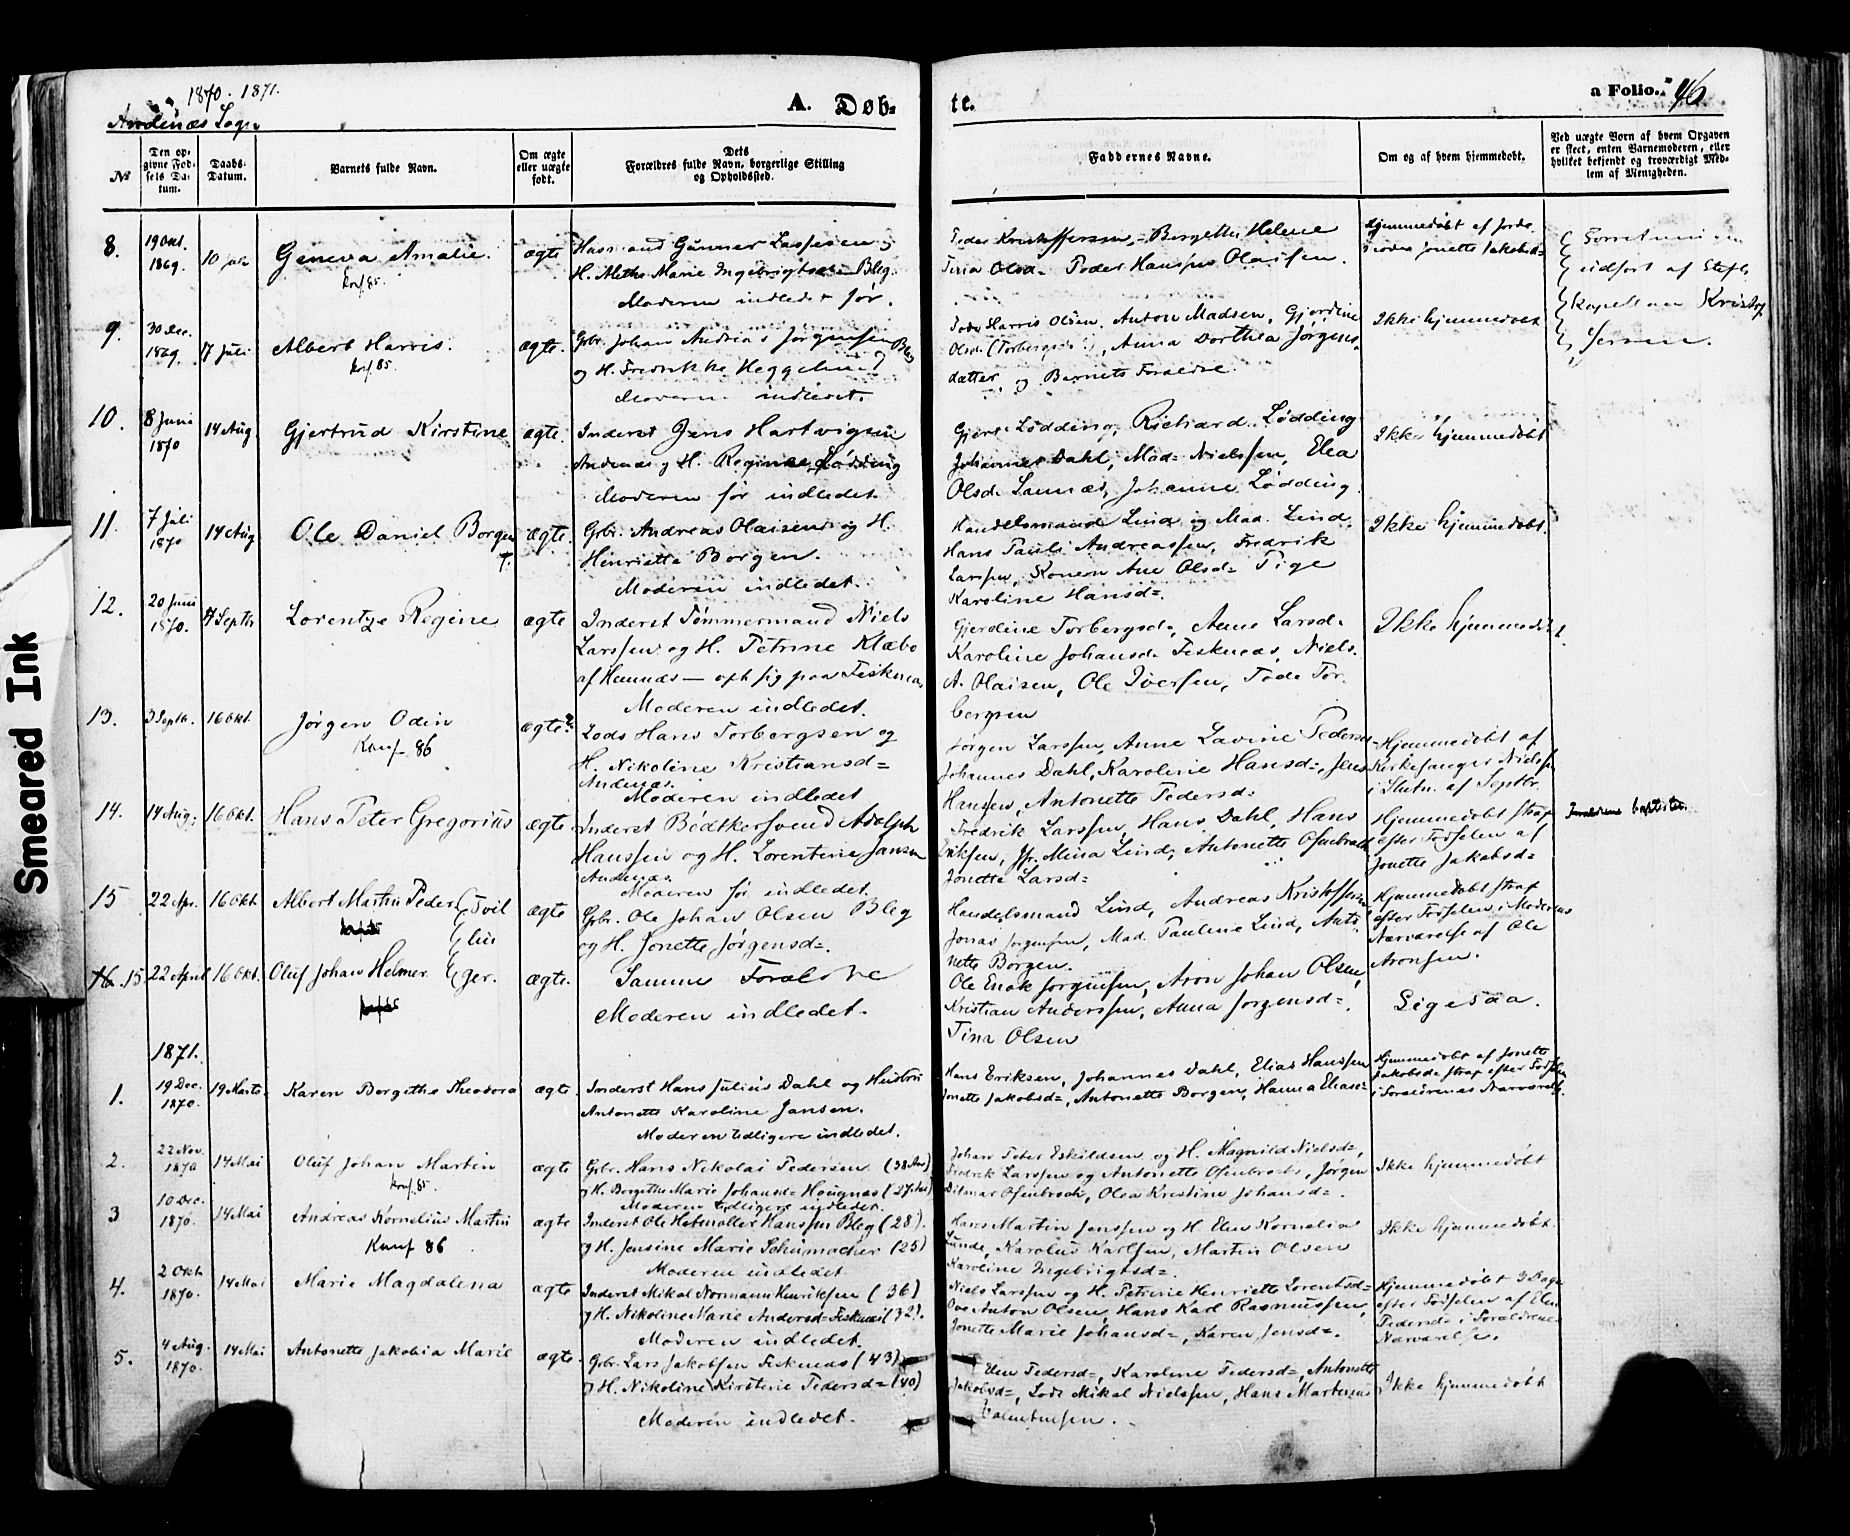 1870. 1871.
Andenæs Sogn
A. Døb-
te.
a Folio. 46
№
Den opgivne Fødsels Datum.
Daabs-Datum.
Barnets fulde Navn.
Om ægte eller uægte født.
Dets Forældres fulde Navn, borgerlige Stilling og Opholdssted.
Faddernes Navne.
Om og af hvem hjemmedøbt.
Ved uægte Børn af hvem Opgaven er skeet, enten Barnemoderen, eller hvilket bekjendt og troværdigt Medlem af Menigheden.
8. 19 Okt. 1869. 10 Juli Geneva Amalie. Konf. 85. ægte
H. Alethe Marie Ingebrigtsd= Bleg.
Moderen indledet før.
Peder Kristoffersen, Bergette Helene
Olsd= Peder Hansen Olaisen.
Hjemmedøbt af Jorde-
moder Jonette Jakobsd=
Forretningen
udført af Stifts
kapellan Kristof
fersen.
9. 30 Dec. 1869. 7 Juli Albert Harris. Konf. 85. ægte.
Gbr. Johan Andreas Jørgensen Bleg
og H. Fredrikke Heggelund
Moderen indledet.
Harris Olsen, Anton Madsen, Gjerdine
Olsd. (Torbergsd.), Anna Dorthea Jørgens-
datter og Barnets Forældre.
Ikke hjemmedøbt
10. 8 Juni 1870 14 Aug. Gjertrud Kirstine ægte.
Inderst Jens Hartvigsen
Andenæs og H. Regine Lødding
Moderen før indledet.
Lødding, Richard Lødding
Johannes Dahl, Mad= Nielssen, Elea
Olsd. Sannæs, Johanne Lødding.
Ikke hjemmedøbt
11. 7 Juli 1870 14 Aug Ole Daniel Borgen ægte.
Gbr. Andreas Olaisen og H.
Henriette Borgen.
Moderen indledet.
Handelsmand Lind og Mad. Lind,
Hans Pauli Andreassen, Fredrik
Larssen, Konen Ane Olsd= Pige
Karoline Hansd=.
Ikke hjemmedøbt.
12. 20 Juni 1870. 7 Septbr Lorentze Regine ægte
Inderst Tømmermand Niels
Larssen og H. Petrine Klæbo
af Hemnæs — oph. sig paa Fiskenæs
Moderen indledet.
Gjerdine Torbergsd=, Anne Larsd=
Karoline Johansd= Fisknæs, Niels
A. Olaisen, Ole Iversen, Peder Tor-
bergsen
Ikke hjemmedøbt.
13. 3 Septb. 16 Okt. Jørgen Odin Konf. 86 ægte
Lods Hans Torbergsen og
H. Nikoline Kristiansd=
Andenæs.
Moderen indledet
Jørgen Larssen, Anne Lavine Peders
Johannes Dahl, Karoline Hansd=, Jens
Hansen, Antonette Pedersd=
Hjemmedøbt af
Kirkesanger Nielssen
i Slutn. af Septbr.
14. 14 Aug. 16 Okt. Hans Peter Gregorius ægte
Inderst Bødtkersvend Adolph
Hanssen og H. Lorentine Jansen
Andenæs.
Moderen før indledet.
Fredrik Larssen, Hans Dahl, Hans
Eriksen, Jfr. Mina Lind, Antonette Ofenbrodt
Jonette Larsd=
Hjemmedøbt strax
efter Fødselen af
Jonette Jakobsd=
Forældrene baptister.
15 22 Apr. 16 Okt Albert Martin Peder Tvil ægte
Gbr. Ole Johan Olsen Bleg
og H. Jonette Jørgensd=.
Handelsmand Lind, Andreas Kristoffersen
Jonas Jørgensen, Mad. Pauline Lind, Anto-
nette Borgen.
Hjemmedøbt strax
efter Fødselen i Moderens
Nærværelse af Ole
Aronsen.
lin
16. 15. 22 April 16 Okt. Oluf Johan Helmer ger. ægte.
Samme Forældre
Moderen indledet.
Ole Enok Jørgensen, Aron Johan Olsen,
Kristian Anderssen, Anna Jørgensd=.
Tina Olsen
Ligesaa.
1871.
1. 19 Dec. 1870. 19 Marts Karen Bergithe Theodora ægte.
Inderst Hans Julius Dahl og Hustru
Antonette Karoline Jansen.
Moderen tidligere indledet.
Hans Eriksen, Johannes Dahl, Elias Hanssen
Jonette Jakobsd=, Antonette Borgen, Hanna Eliasd=
Hjemmedøbt af Jonette
Jakobsd= strax efter Fødselen
i Forældrenes Nærværelse.
2. 22 Nov. 1870 14 Mai Oluf Johan Martin Konf. 85. ægte
Gbr. Hans Nikolai Pedersen (38 Aar)
og H. Bergithe Marie Johansd= Haugnæs (27 Aar)
Moderen tidligere indledet.
Johan Peter Eskildsen og H. Magnild Nielsd=,
Fredrik Larssen og Antonette Ofenbrodt, Jørgen
Ditmar Ofenbrodt, Olea Kristine Johansd=.
Ikke hjemmedøbt
3 10 Dec. 1870. 14 Mai Andreas Kornelius Martin Konf 86 ægte
Inderst Ole Hetmøller Hanssen Bleg (28).
og H. Jensine Marie Schumacher (25)
Moderen indledet
Hans Martin Jenssen og H. Elen Kornelia
Lunde, Karolus Karlsen, Martin Olsen
Karoline Ingebrigtsd=.
Ikke hjemmedøbt.
4. 2 Okt. 1870. 14 Mai Marie Magdalena ægte
Inderst Mikal Normann Henriksen (36)
og H. Nikoline Marie Andersd= Fisknæs (32).
Moderen indledet.
Niels Larssen og H. Petrine Henriette Lorentsd=
Ove Anton Olsen, Hans Karl Rasmussen,
Jonette Marie Johansd=, Karen Jensd=.
Hjemmedøbt 3 Dage
efter Fødselen af Elen
Pedersd= i Forældrenes
Nærværelse.
5. 4 Aug. 1870. 14 Mai Antonette Jakobia Marie ægte.
Gbr. Lars Jakobsen Fisknæs (43)
og H. Nikoline Kirstine Pedersd= (40)
Moderen indledet.
Elen Pedersd=, Karoline Pedersd=, Antonette
Jakobsd=, Lods Mikal Nielssen, Hans Martinus
Ikke hjemmedøbt
Smeared Ink